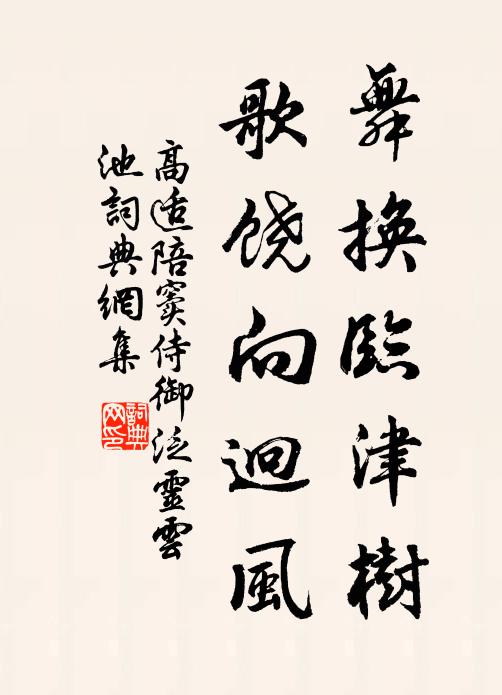 舞換臨津樹
歌饒向迴風
高適陪竇侍御泛靈雲
池詞典網集
詞典
网印